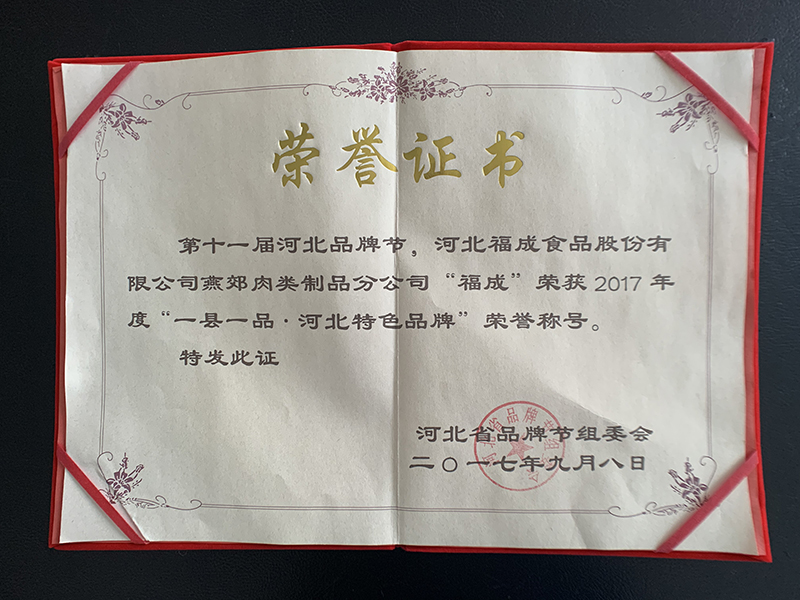 荣誉证书
第十一届河北品牌节，河北福成食品股份有
限公司燕郊肉类制品分公司“福成”荣获 2017 年
度“一县一品·河北特色品牌”荣誉称号。
特发此证
河北省品牌节组委会
二〇一七年九月八日
河北省品牌节组委会